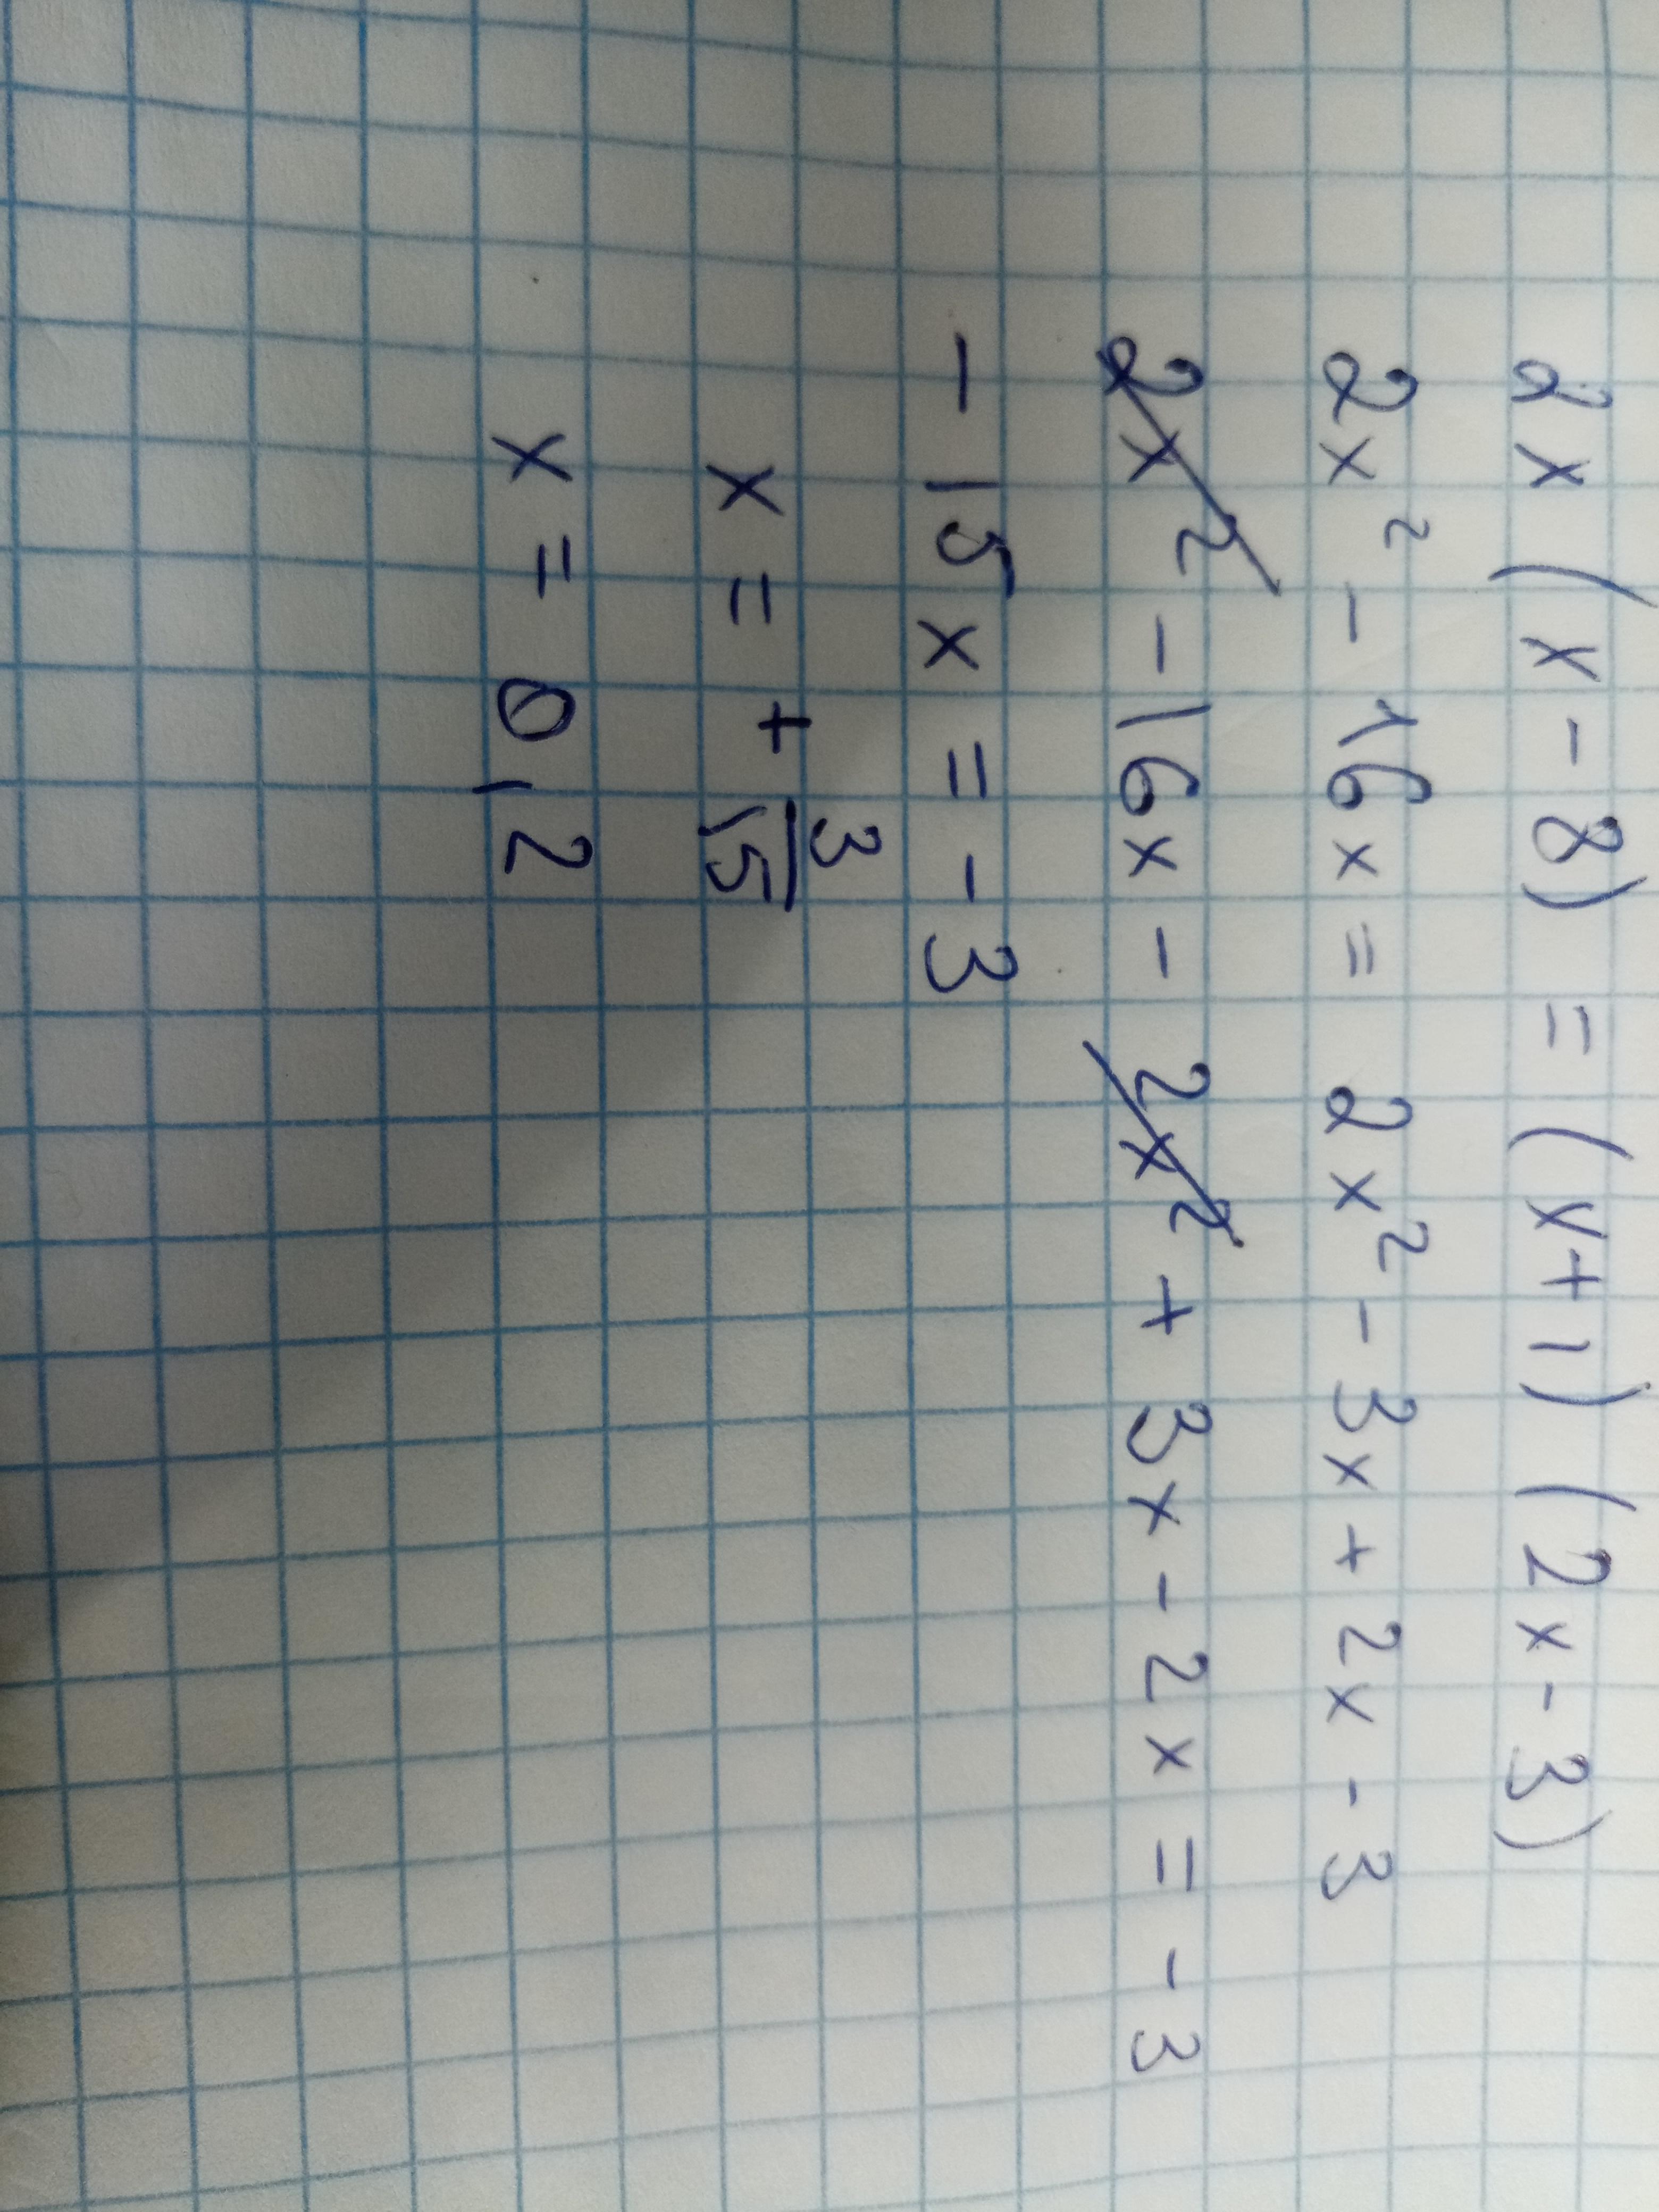 2x (x - 8) = (x + 1) (2x - 3)
2x² - 16x = 2x² - 3x + 2x - 3
2x² - 16x - 2x² + 3x - 2x = - 3
- 15x = - 3
x = + 3/15
x = 0,2